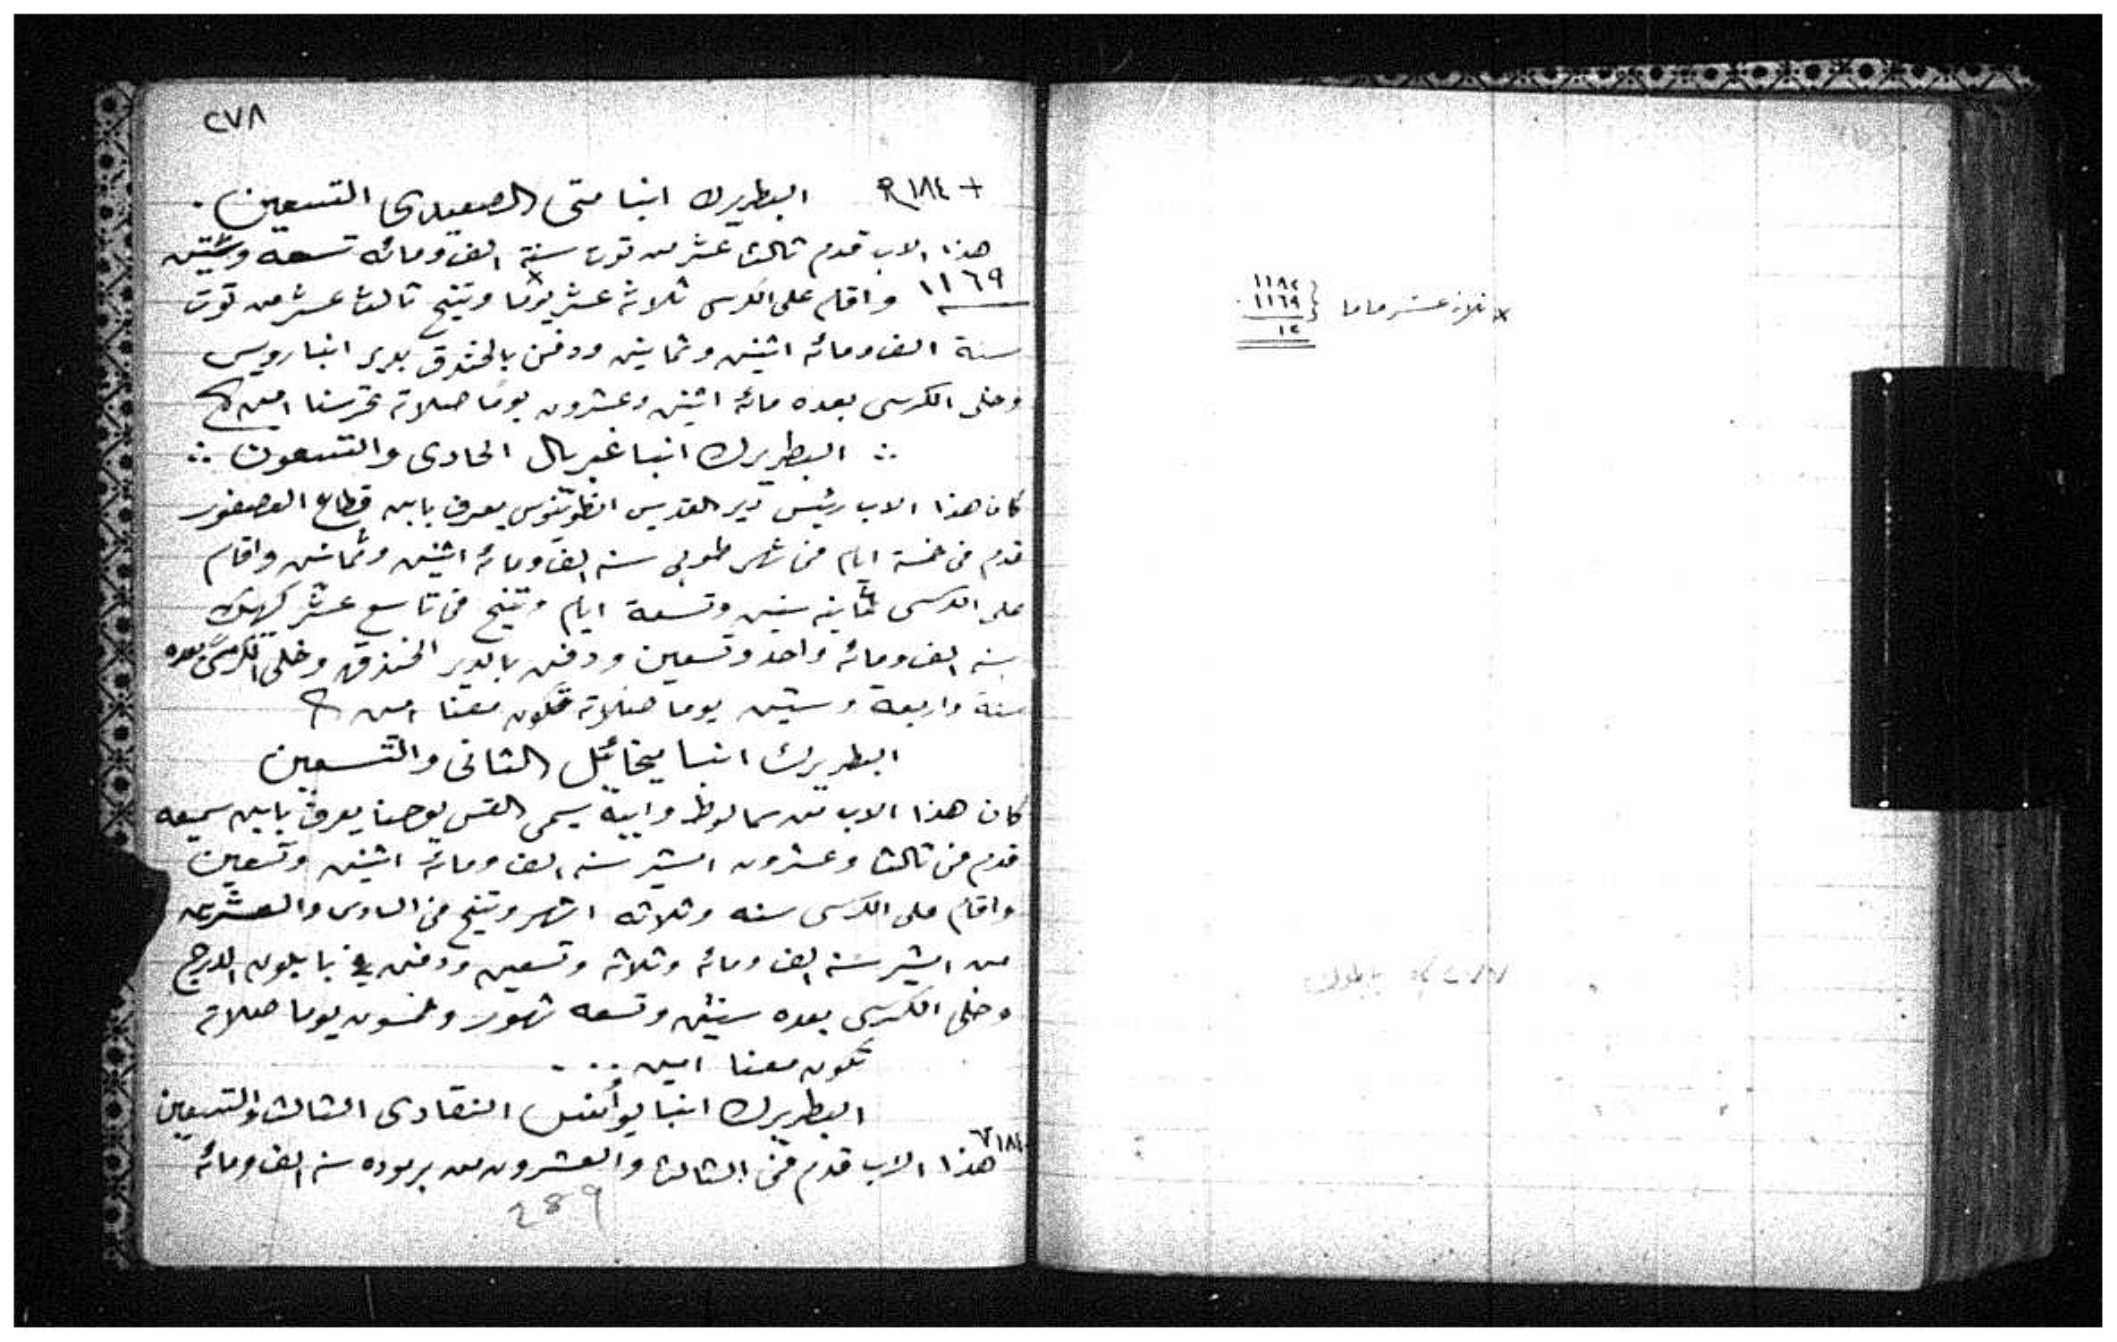 ٢٧٨
+ ١٨٤ R البطريرك انبا متى الصعيدى التسعين .
هذا الاب قدم ثالث عشر من توت سنة الف ومائه تسعه وستين
١١٦٩ واقام على الكرسى ثلاثة عشر يوما × وتنيح ثالث عشر من توت
سنة الف ومائه اثنين وثمانين ودفن بالخندق بدير انبا رويس
وخلى الكرسى بعده مائة اثنين وعشرون يوما صلاته تحرسنا امين
∴ البطريرك انبا غبريال الحادى والتسعون ∴
كان هذا الاب رئيس دير القديس انطونيوس يعرف بابن قطاع العصفور
قدم فى خمسة ايام من شهر طوبى سنه الف ومائه اثنين وثمانين واقام
على الكرسى ثمانية سنين وتسعة ايام وتنيح فى تاسع عشر كيهك
سنه الف ومائه واحد وتسعين ودفن بالدير الخندق وخلى الكرسى بعده
سنة واربعة وستين يوما صلاته تكون معنا امين
البطريرك انبا ميخائيل الثانى والتسعين
كان هذا الاب من سمالوط وابيه يسمى القس يوحنا يعرف بابن سميعه
قدم فى ثالث وعشرون امشير سنه الف ومائه اثنين وتسعين
واقام على الكرسى سنه وثلاثه اشهر وتنيح فى السادس والعشرين
من امشير سنه الف ومائه وثلاثه وتسعين ودفن فى بابلون الدرج
وخلى الكرسى بعده سنتين وتسعه شهور وخمسون يوما صلاته
تكون معنا امين . . -
البطريرك انبا يوأنس النقادى الثالث والتسعين
١٨٤ هذا الاب قدم فى الثالث والعشرون من برموده سنه الف ومائه
289
× ثلاثة عشر عاما } ١١٨٢
١١٦٩
١٣